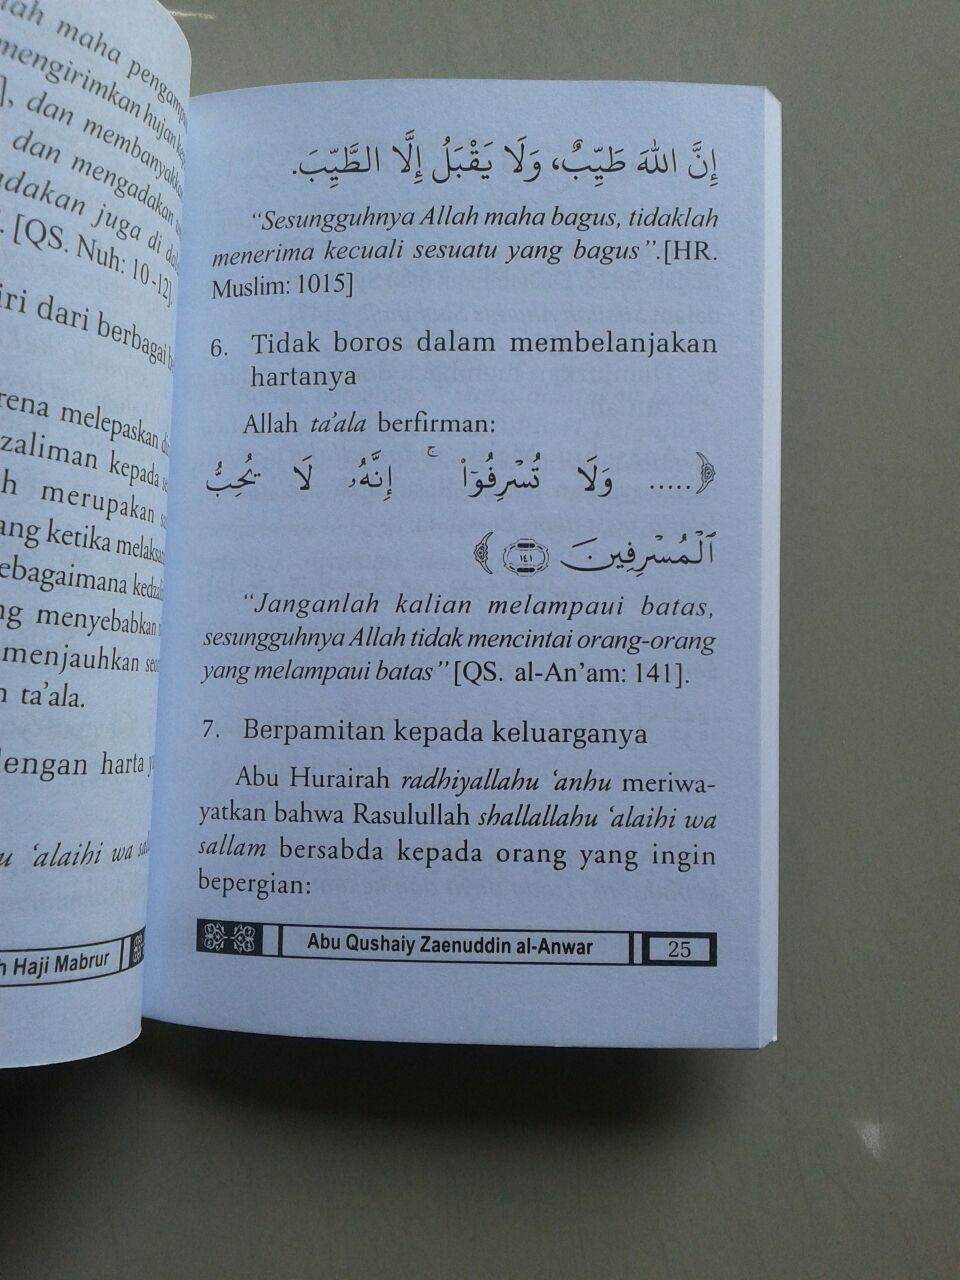 maha pengampun
mengirimkan hujan
], dan membanyakkan
dan mengadakan
juga di
. [QS. Nuh: 10-12].
dari berbagai
melepaskan
kepada
merupakan
ketika
kedza
menyebabkan
menjauhkan
ta’ala.
dengan harta
‘alaihi wa
Haji Mabrur
إِنَّ اللهَ طَيِّبٌ، وَلَا يَقْبَلُ إِلَّا الطَّيِّبَ.
“Sesungguhnya Allah maha bagus, tidaklah
menerima kecuali sesuatu yang bagus”.[HR.
Muslim: 1015]
6. Tidak boros dalam membelanjakan
hartanya
Allah ta’ala berfirman:
﴿..... وَلَا تُسْرِفُوٓا۟ ۚ إِنَّهُۥ لَا يُحِبُّ
ٱلْمُسْرِفِينَ ١٤١ ﴾
“Janganlah kalian melampaui batas,
sesungguhnya Allah tidak mencintai orang-orang
yang melampaui batas” [QS. al-An’am: 141].
7. Berpamitan kepada keluarganya
Abu Hurairah radhiyallahu ‘anhu meriwa-
yatkan bahwa Rasulullah shallallahu ‘alaihi wa
sallam bersabda kepada orang yang ingin
bepergian:
Abu Qushaiy Zaenuddin al-Anwar 25